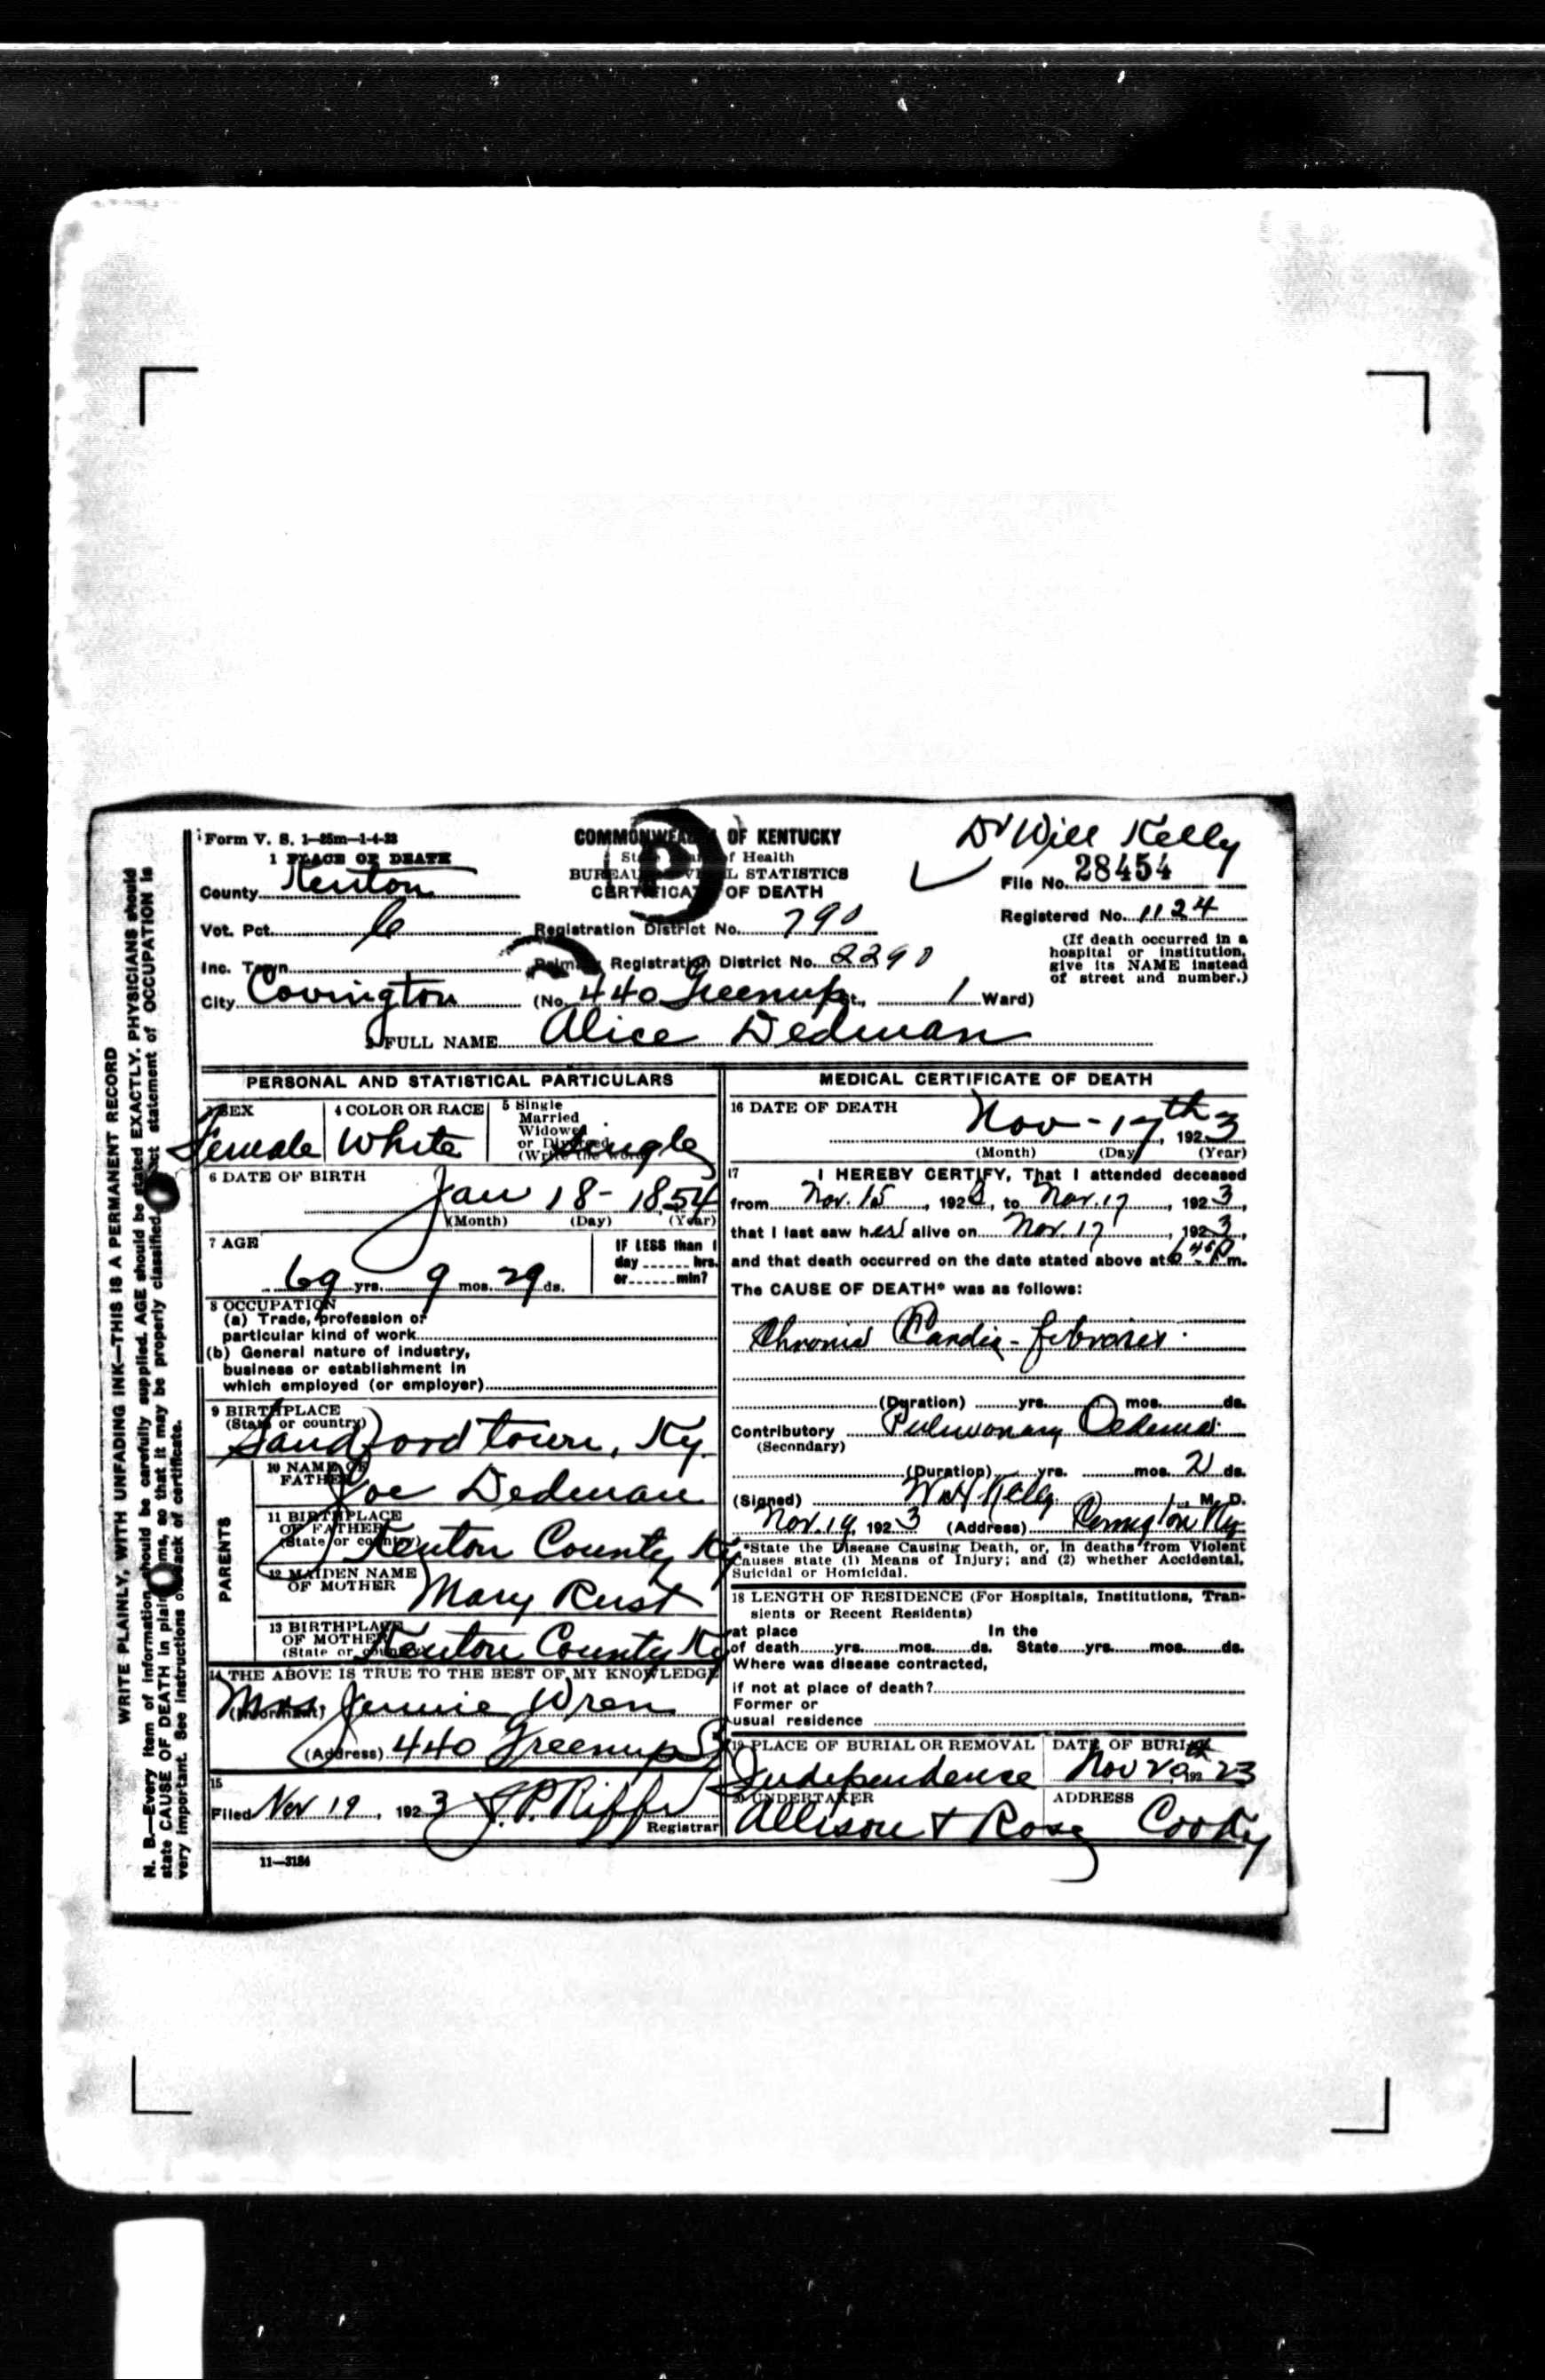 Form V. S. 1—25m—1-4-23
COMMONWEALTH OF KENTUCKY
Dr Will Kelly
1 PLACE OF DEATH
State Board of Health
BUREAU OF VITAL STATISTICS
CERTIFICATE OF DEATH
File No. 28454
County Kenton
Registered No. 1124
Vot. Pct. 6
Registration District No. 790
(If death occurred in a hospital or institution, give its NAME instead of street and number.)
Inc. Town
Primary Registration District No. 2290
City Covington (No. 440 Greenup St., 1 Ward)
2 FULL NAME Alice Dedman
PERSONAL AND STATISTICAL PARTICULARS
3 SEX
Female
4 COLOR OR RACE
White
5 Single
Married
Widowed
or Divorced
(Write the word)
Single
6 DATE OF BIRTH
Jan 18 - 1854
(Month) (Day) (Year)
7 AGE
69 yrs. 9 mos. 29 ds.
IF LESS than 1
day hrs.
or min?
8 OCCUPATION
(a) Trade, profession or
particular kind of work
(b) General nature of industry,
business or establishment in
which employed (or employer)
9 BIRTHPLACE
(State or country)
Sandfordtown, Ky.
PARENTS
10 NAME OF
FATHER
Joe Dedman
11 BIRTHPLACE
OF FATHER
(State or country)
Kenton County Ky
12 MAIDEN NAME
OF MOTHER
Mary Rust
13 BIRTHPLACE
OF MOTHER
(State or country)
Kenton County Ky
14 THE ABOVE IS TRUE TO THE BEST OF MY KNOWLEDGE
(Informant) Mrs. Jennie Wren
(Address) 440 Greenup St
15
Filed Nov 19, 1923 J.P. Riffe
Registrar
11—3184
MEDICAL CERTIFICATE OF DEATH
16 DATE OF DEATH
Nov - 17th, 1923
(Month) (Day) (Year)
17 I HEREBY CERTIFY, That I attended deceased
from Nov. 15, 192, to Nov. 17, 1923,
that I last saw her alive on Nov. 17, 1923,
and that death occurred on the date stated above at 6 45 P m.
The CAUSE OF DEATH* was as follows:
Chronic Cardia - fibrosis.
(Duration) yrs. mos. ds.
Contributory Pulmonary Oedema.
(Secondary)
(Duration) yrs. mos. 2 ds.
(Signed) W.H. Kelly, M. D.
Nov. 19, 1923 (Address) Covington Ky
*State the Disease Causing Death, or, in deaths from Violent
Causes state (1) Means of Injury; and (2) whether Accidental,
Suicidal or Homicidal.
18 LENGTH OF RESIDENCE (For Hospitals, Institutions, Tran-
sients or Recent Residents)
at place In the
of death yrs. mos. ds. State yrs. mos. ds.
Where was disease contracted,
if not at place of death?
Former or
usual residence
19 PLACE OF BURIAL OR REMOVAL
Independence
DATE OF BURIAL
Nov 20th 192 23
20 UNDERTAKER
Allison & Rose
ADDRESS
Cov Ky
WRITE PLAINLY, WITH UNFADING INK—THIS IS A PERMANENT RECORD
N. B.—Every item of information should be carefully supplied. AGE should be stated EXACTLY. PHYSICIANS should
state CAUSE OF DEATH in plain terms, so that it may be properly classified. Exact statement of OCCUPATION is
very important. See instructions on back of certificate.